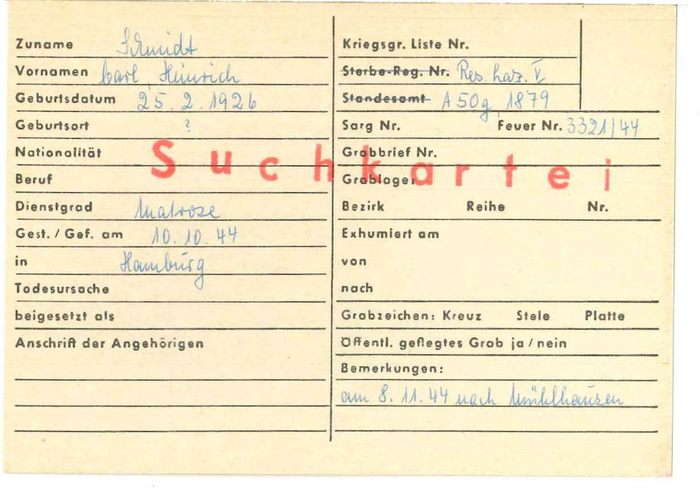 Zuname Schmidt
Vornamen Carl, Heinrich
Geburtsdatum 25.2.1926
Geburtsort ?
Nationalität
Suchkartei
Beruf
Dienstgrad Matrose
Gest. / Gef. am 10.10.44
in Hamburg
Todesursache
beigesetzt als
Anschrift der Angehörigen
Kriegsgr. Liste Nr.
Sterbe-Reg. Nr. Res. Laz. V
Standesamt A 50g, 1879
Sarg Nr. Feuer Nr. 3321/44
Grabbrief Nr.
Grablage:
Bezirk Reihe Nr.
Exhumiert am
von
nach
Grabzeichen: Kreuz Stele Platte
Öffentl. geflegtes Grab ja / nein
Bemerkungen:
am 8.11.44 nach Mühlhausen